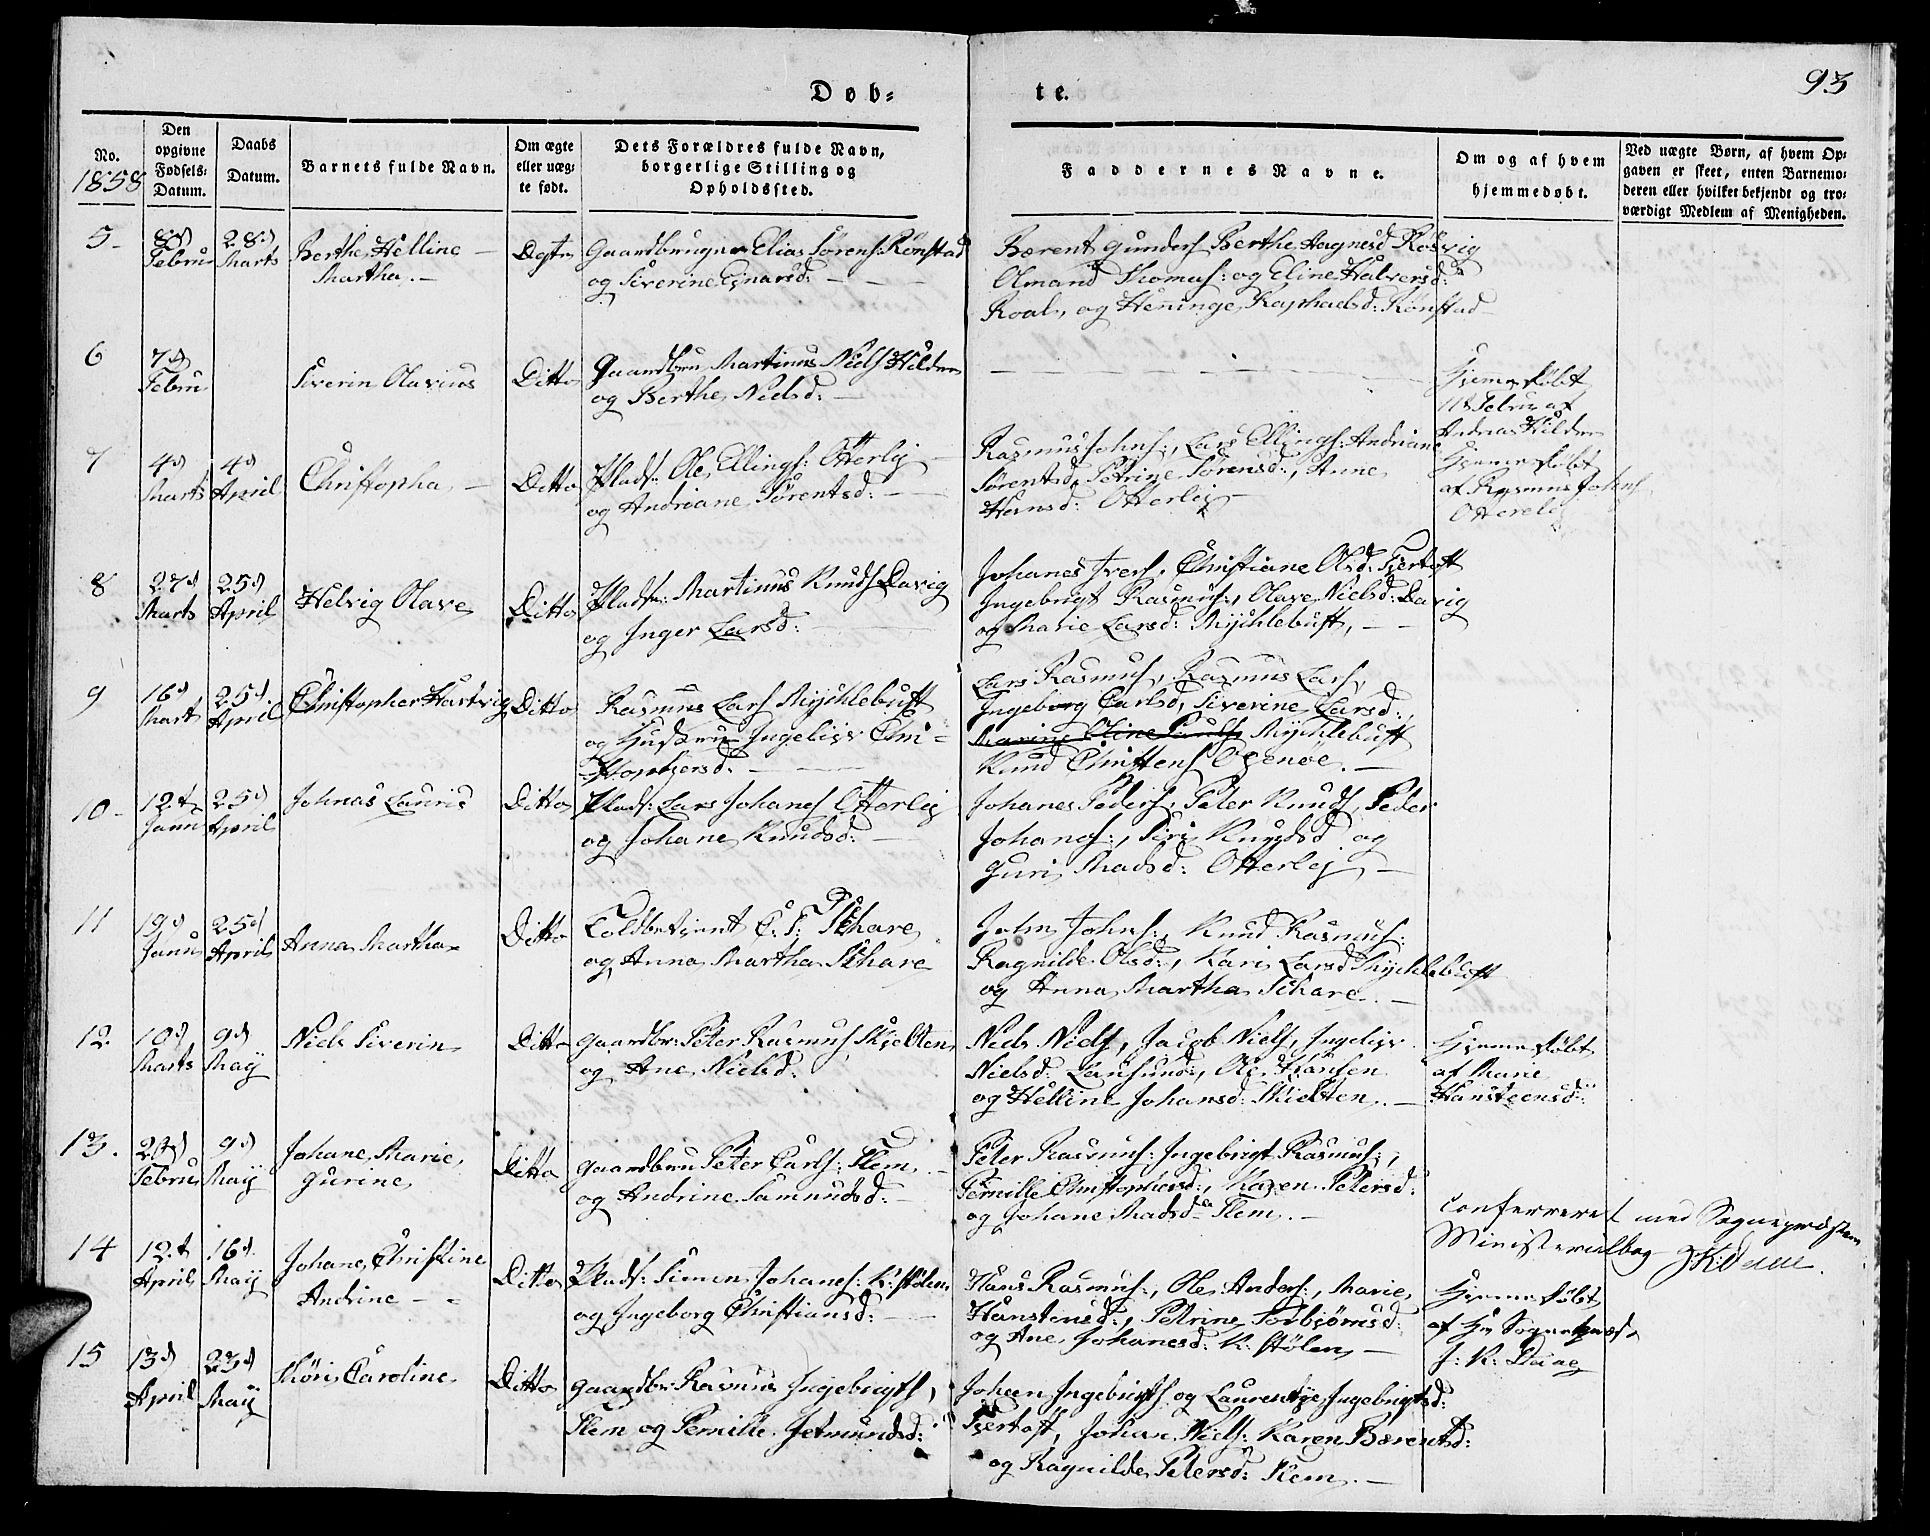 93
Døb-
te.
No.
1858
Den
opgivne
Fødsels-
Datum.
Daabs
Datum.
Barnets fulde Navn.
Om ægte
eller uæg-
te født.
Dets Forældres fulde Navn,
borgerlige Stilling og
Opholdssted.
Faddernes Navne.
Om og af hvem
hjemmedøbt.
Ved uægte Børn, af hvem Op-
gaven er skeet, enten Barnemo-
deren eller hvilket bekjendt og tro-
værdigt Medlem af Menigheden.
5-
8d
Febru
28d
Marts
Berthe Helline
Martha.
Ægte
Gaardbruger Elias Sørens: Rønstad
og Siverine Einarsd:
Bærent Gunders Berthe Aagnesd Røsvig
Olmand Thomas: og Eline Halversd:
Roald, og Heninge Raphaelsd: Rønstad
6
7d
Febru
Siverin Olavius
Ditto
Gaardbru Martinus Niels Hildre
og Berthe Nielsd:
Hjemedøbt
11t Febru af
Andreas Hildre
7
4d
Marts
4d
April
Christopha
Ditto
Plads: Ole Ellings: Otterlej
og Andriane Sørentsd:
Rasmus Johns:, Lars Ellings: Andriane
Sørentsd, Petrine Sørensd:, Anne
Hansd: Otterlej
Hjemedøbt
af Rasmus Johns
Otterlej
8
27d
Marts
25d
April
Helvig Olave
Ditto
Plads: Martinus Knuds Davig
og Inger Larsd:
Johanes Ivers, Christiane Olsd: Fjertoft
Ingebrigt Rasmus:, Olave Nielsd: Davig
og Marie Larsd: Myklebust,
9
16d
Mart
25d
April
Christopher Hartvig
Ditto
Rasmus Lars Mychlebust
og Hustru Ingelise Chri-
stophersd:
Lars Rasmus, Rasmus Lars,
Ingeborg Carlsd, Siverine Larsd:,
Marine Oline Knuds Mychlebust
Knud Christens Ogenøe.
10-
12t
Janu
25d
April
Johnas Lauris
Ditto
Plads: Lars Johanes Otterlej
og Johane Knudsd:
Johanes Peders, Peter Knuds, Peder
Johanes:, Siri Knudsd og
Guri Madsd: Otterlej
11
19d
Janu
25d
April
Anna Martha
Ditto
Toldbetjent C. P. Schare
og Anna Martha Schare
John Johns:, Knud Rasmus:
Ragnilde Olsd:, Kari Larsd Mychlebust
og Anna Martha Schare.
12.
10d
Marts
9d
May
Niels Siverin
Ditto
Gaardbr: Peter Rasmus Skjelten
og Ane Nielsd:
Niels Niels, Jacob Niels, Ingelise
Nielsd: Lausund:, Ole Hansen
og Helline Johansd: Skielten.
Hjemedøbt
af Marie
Hansteensd:
13.
23d
Febru
9d
May
Johane Marie
Gurine
Ditto
Gaardbru Peter Carls: Flem
og Andrine Samundsd:
Peter Rasmus: Ingebrigt Rasmus:,
Pernille Christophersd:, Karen Petersd:
og Johane Madsd: Flem.
Conferreret med Sognepræstens
Ministerialbog JKDaae.
14
12t
April
16d
May
Johane Christine
Andrine
Ditto
Plads: Simon Johanes: K: stølen
og Ingeborg Christiansd:
Hans Rasmus:, Ole Anders:, Marie
Hanstensd:, Petrine Torbjørnsd:
og Ane Johanesd: K: stølen,
Hjemedøbt
af Hr Sognepræst
J: K: Daae
15
13d
April
23d
May
Thøri Caroline
Ditto
Gaardbr Rasmus Ingebrigts,
Flem og Pernille Jetmundsd:
Johan Ingebrigts og Laurentze Ingebrigtsd:
Fjertoft, Johan Niels: Karen Bærentsd:
og Ragnilde Petersd: Flem.